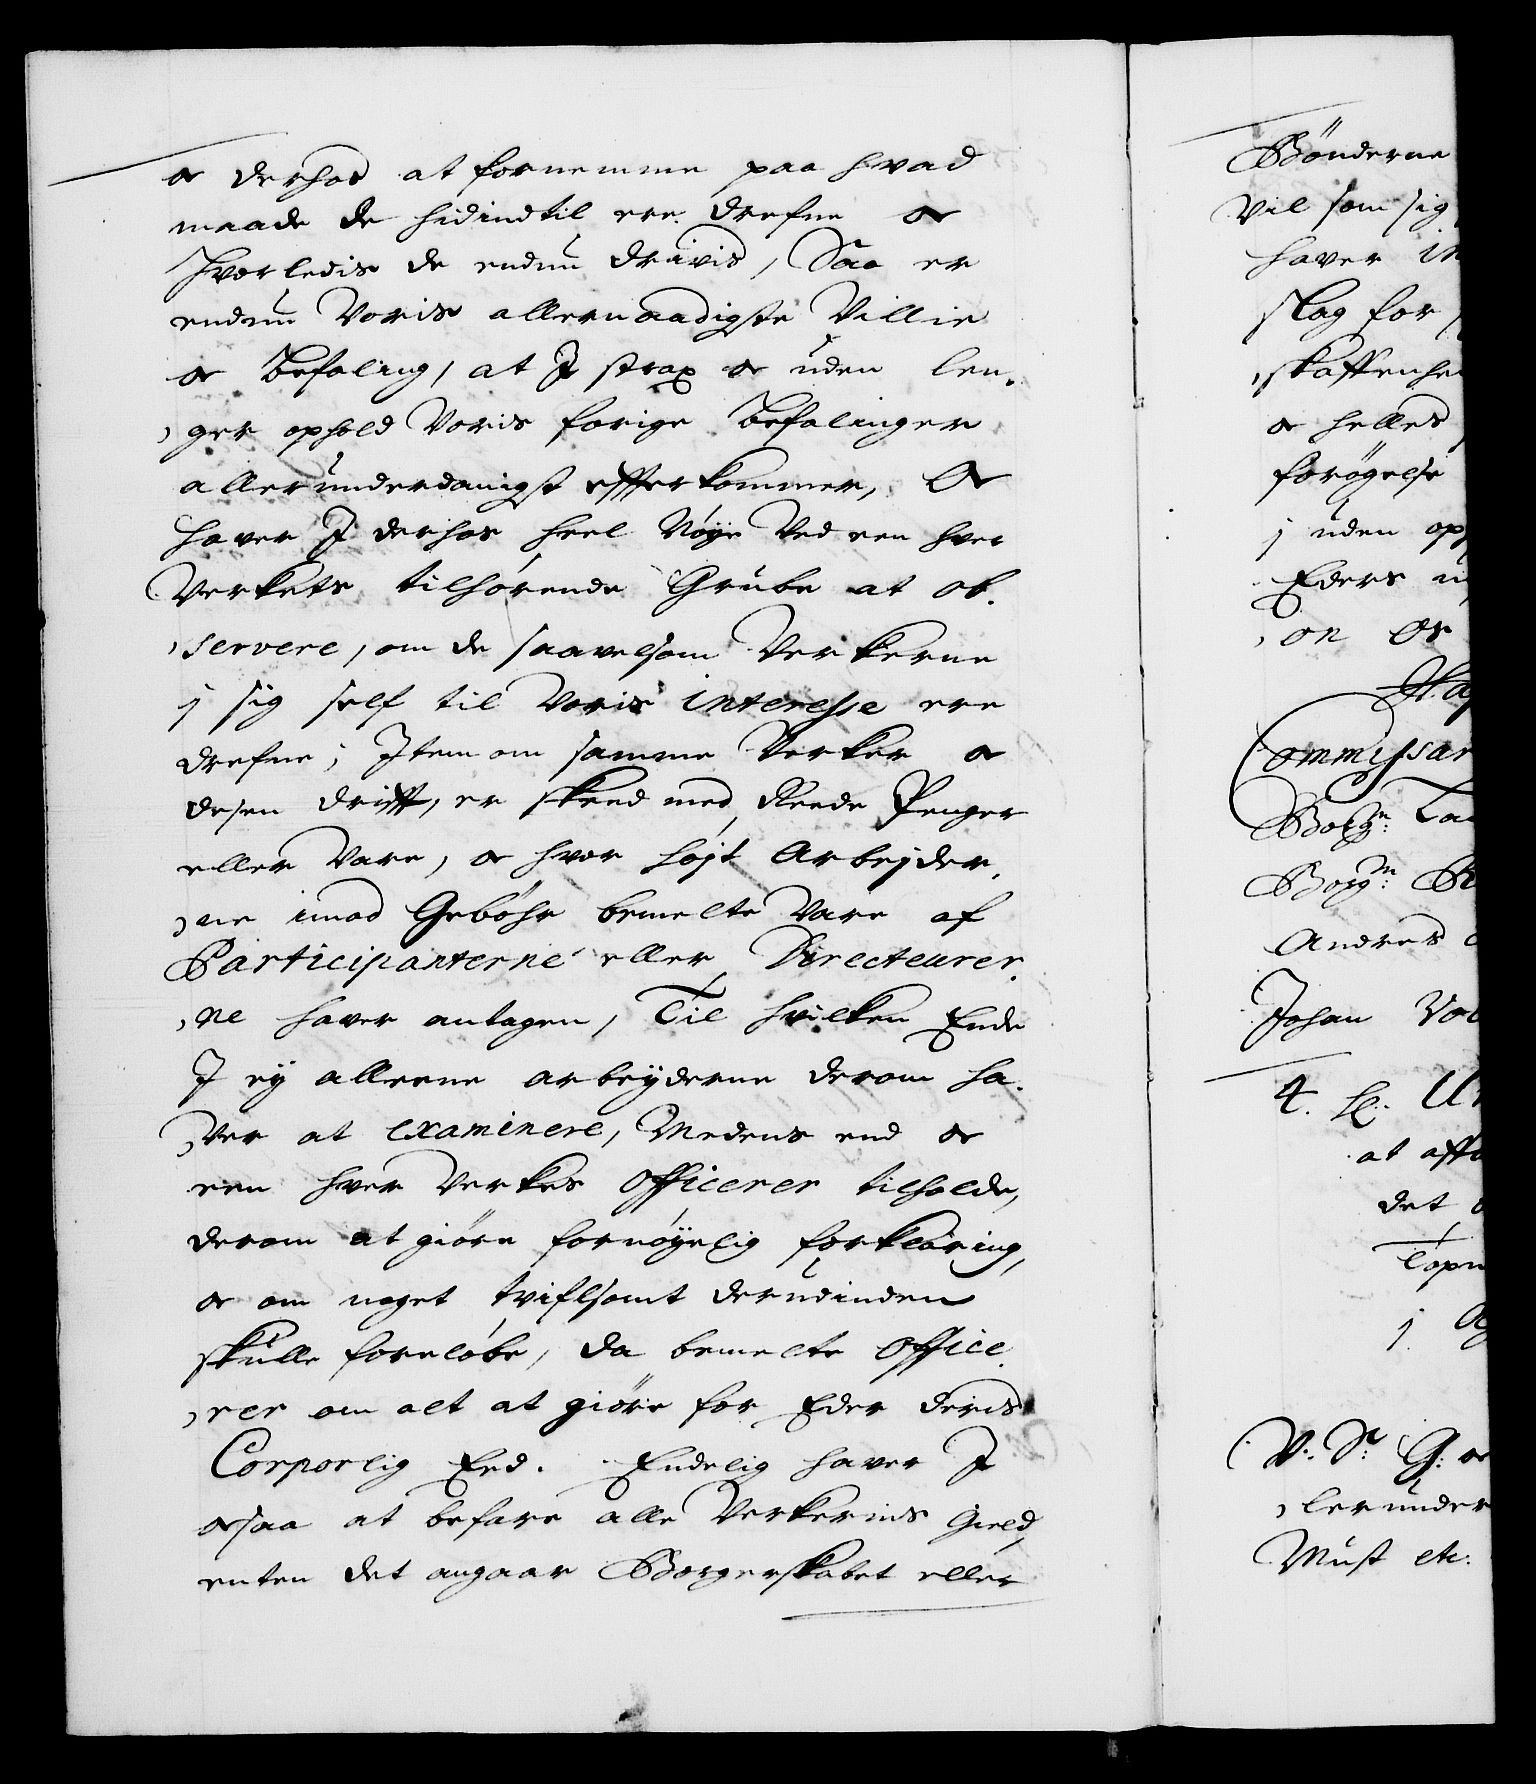 oc derhos at fornemme paa hvad
maade de hidindtil ere drefne oc
hvorledis de endnu drivis, Saa er
endnu Voris allernaadigste Villie
oc Befaling, at I strax oc uden len,
,ger ophold Voris forige Befalinger
allerunderdanigst effterkommer, Oc
haver I derhos heel Nøye Ved een hver
Verkets tilhørende Grube at ob,
,servere, om de saavelsom Verkerne
j sig self til Voris interesse ere
drefne; Item om samme Verker oc
desen drifft, er skeed med Reede Penger
eller Vare, oc hvor højt Arbejder,
,ne imod Gebøhr bemelte Vare af
Participanterne eller Directeurer,
,ne haver antagen, Til hvilken Ende
I ey alleene arbeyderne derom ha,
,ver at examinere, Medens end oc
een hver Verkes Officerer tilholde,
derom at giöre fornøyelig forklaring,
oc om noget tviflsomt derudinden
skulle foreløbe, da bemelte Office,
,rer om alt at giöre for Eder deris
Corporlig Eed. Endelig haver I
ocsaa at befare alle Verkernis Gield,
enten det angaar Borgerskabet eller
Bönderne
Vil som sig
haver
slag for
,skaffenhe
oc helles
forøgelse
j uden op
Eders
,on Oc
Commissar
Borgm:
Borgm:
Andres
Johan
4. Sl:
at
det
j
V. Sr. G: oc
,lerunder
Must etc: